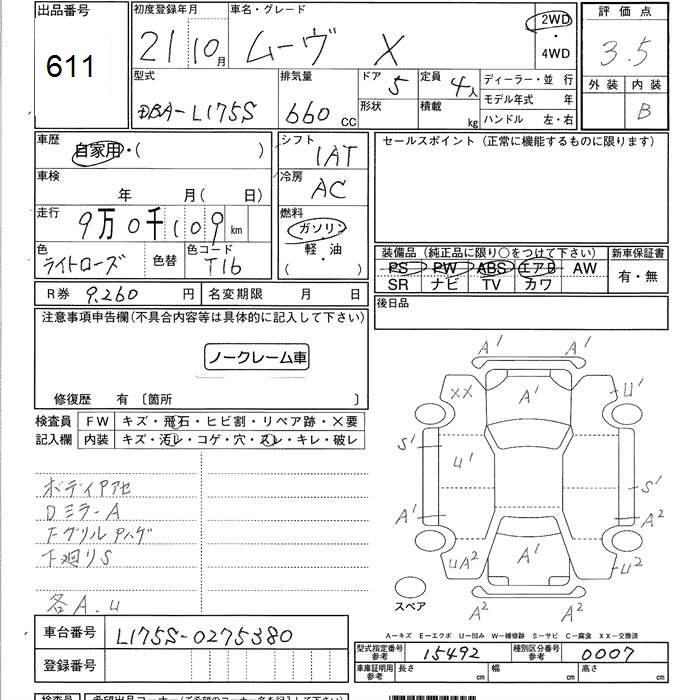 出品番号
611
初度登録年月
21 10月
車名・グレード
ムーヴ X
2WD
・
4WD
評価点
3.5
型式
DBA-L175S
排気量
660 cc
ドア 5
形状
定員 4人
積載 kg
ディーラー・並 行
モデル年式 年
ハンドル 左・右
外装 内装
B
車歴
自家用・( )
車検
年 月( 日)
走行
9万0千109 km
色
ライトローズ
色替
色コード
T16
シフト
IAT
冷房
AC
燃料
ガソリン
軽・油
( )
セールスポイント(正常に機能するものに限ります)
装備品(純正品に限り○をつけて下さい)
PS PW ABS エアB AW
SR ナビ TV カワ
新車保証書
有・無
後日品
R券 9,260 円
名変期限 月 日
注意事項申告欄(不具合内容等は具体的に記入して下さい)
ノークレーム車
修復歴 有 〔箇所 〕
検査員
記入欄
FW キズ・飛石・ヒビ割・リペア跡・×要
内装 キズ・汚レ・コゲ・穴・スレ・キレ・破レ
ボディアアセ
DミラーA
Fグリルアハゲ
下廻りS
各A.u
A1
A1
XX
A1
U1
S1
u1
S1
A1
A2
uA2
A1
u2
A2
A2
スペア
A−キズ E−エクボ U−凹み W−補修跡 S−サビ C−腐食 XX−交換済
車台番号
L175S-0275380
登録番号
型式指定番号
参考
15492
種別区分番号
参考
0007
車庫証明用
参考
長さ cm
幅 cm
高さ cm
検査員
希望出品コーナー(ご希望のコーナー名を記入下さい)